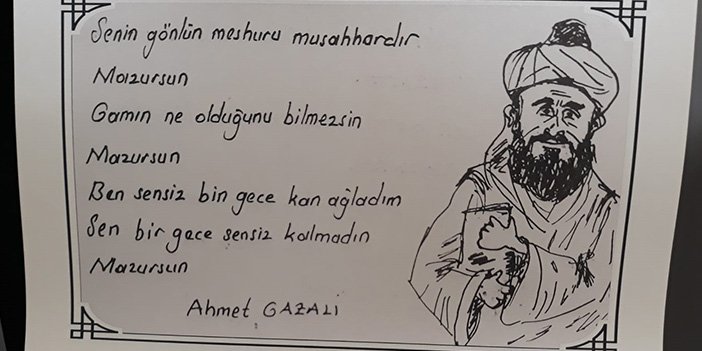 Senin gönlün meshuru musahhardır
Mazursun
Gamın ne olduğunu bilmezsin
Mazursun
Ben sensiz bin gece kan ağladım
Sen bir gece sensiz kalmadın
Mazursun
Ahmet GAZALİ